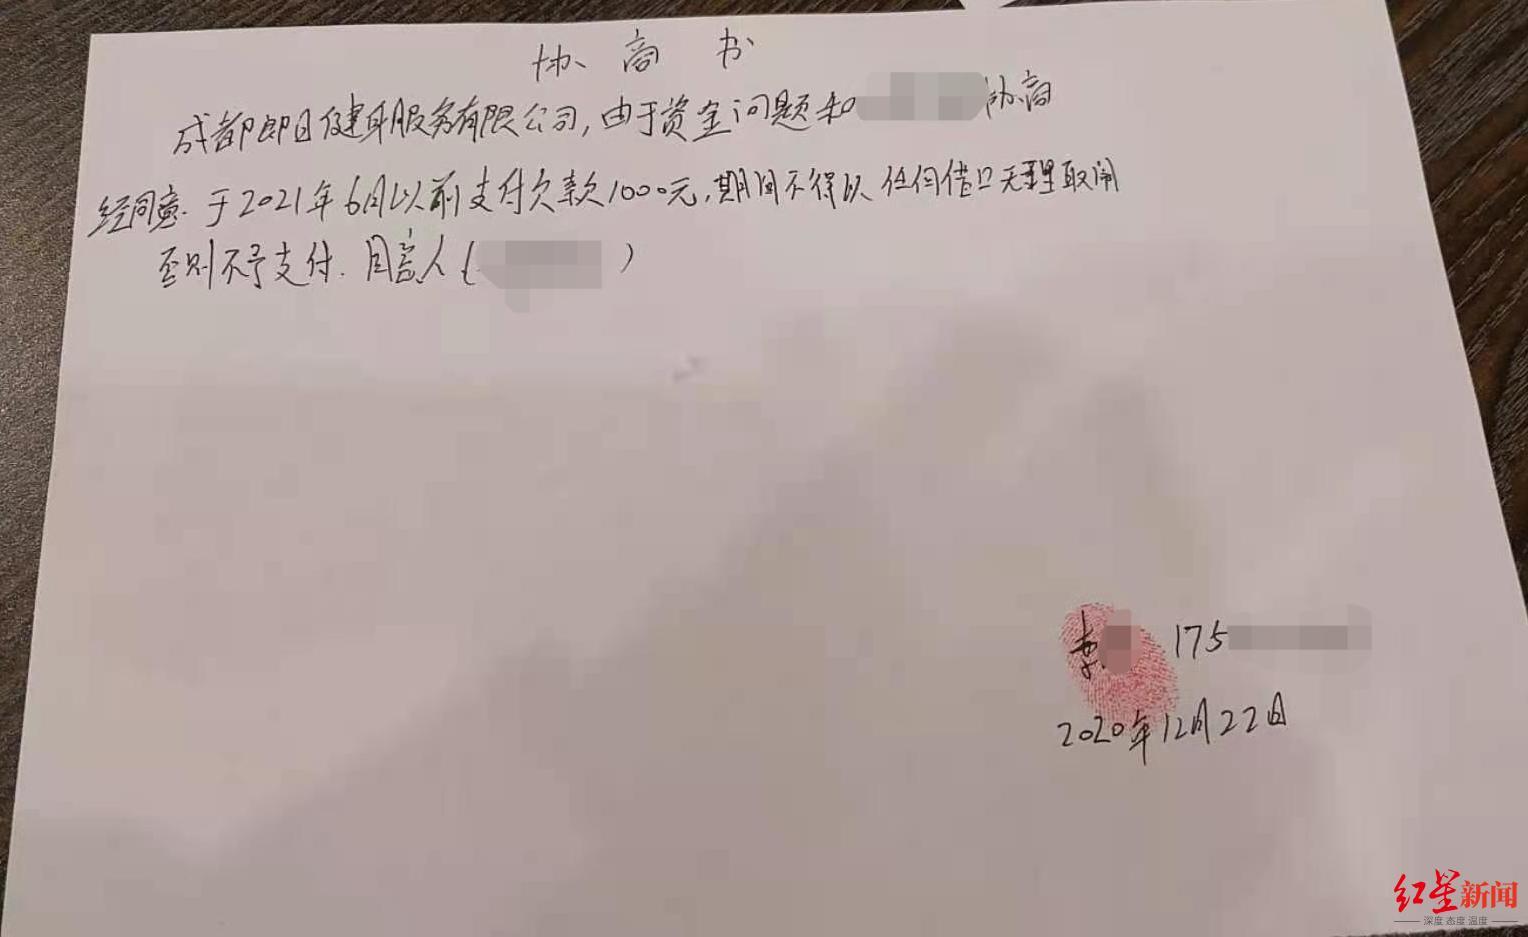 协商书
成都即日健身服务有限公司,由于资金问题和 协商
经同意.于2021年6月以前支付欠款1000元,期间不得以任何借口无理取闹
否则不予支付. 同意人( )
李 175
2020年12月22日
红星新闻
深度 态度 温度